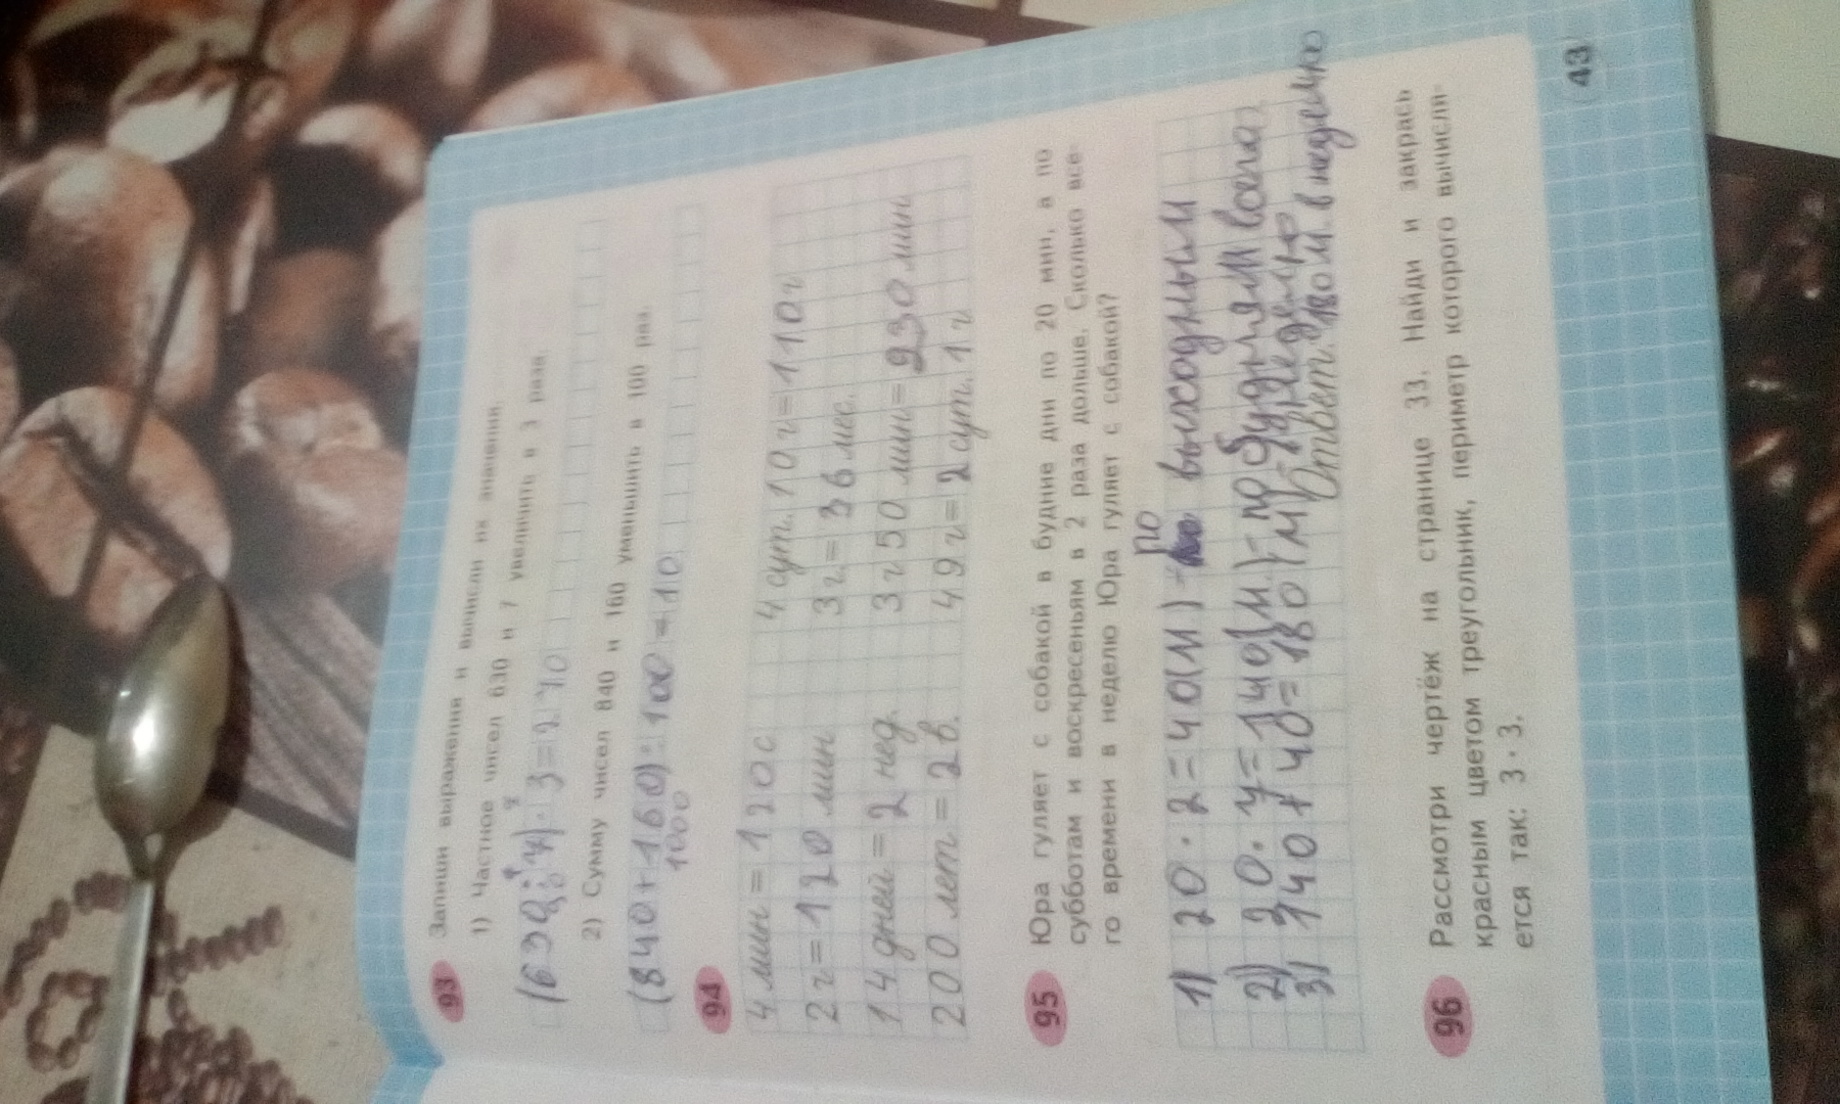 93 Запиши выражения и вычисли их значения.
1) Частное чисел 630 и 7 увеличить в 3 раза.
(630:7)·3=270
2) Сумму чисел 840 и 160 уменьшить в 100 раз.
(840+160):100=10
1000
94
4 мин=120с 4 сут.10ч=110ч
2ч=120 мин 3г.=36 мес.
14 дней=2 нед. 3ч50 мин=230 мин
200 лет=2в. 49ч=2 сут.1ч
95 Юра гуляет с собакой в будние дни по 20 мин, а по
субботам и воскресеньям в 2 раза дольше. Сколько все-
го времени в неделю Юра гуляет с собакой?
по
1) 20·2=40(м)- выходным
2) 20·7=140(м)-по будням
3) 140+40=180(м)-
Ответ: 180 м. в неделю
96 Рассмотри чертёж на странице 33. Найди и закрась
красным цветом треугольник, периметр которого вычисля-
ется так: 3·3.
43